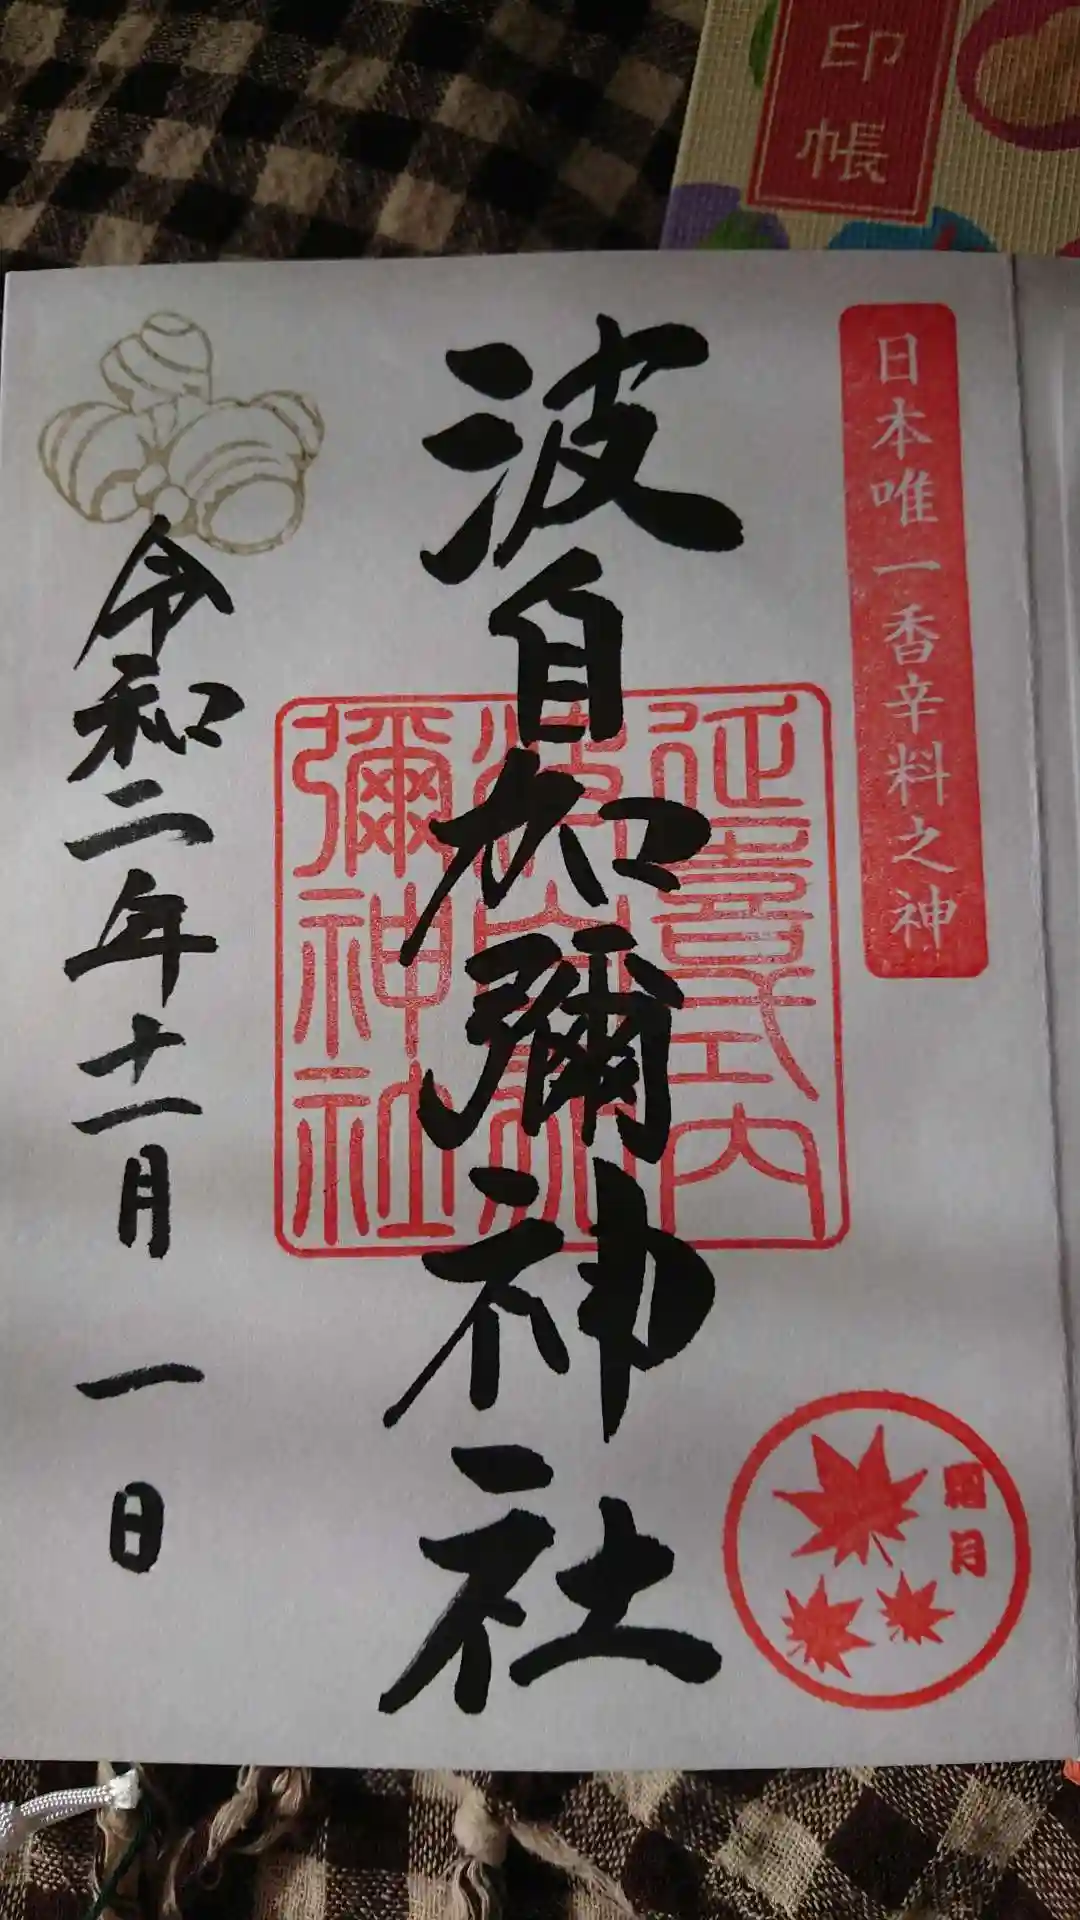 印帳
日本唯一香辛料之神
波自加彌神社
延喜式内
波自加
彌神社
令和二年十一月一日
霜月